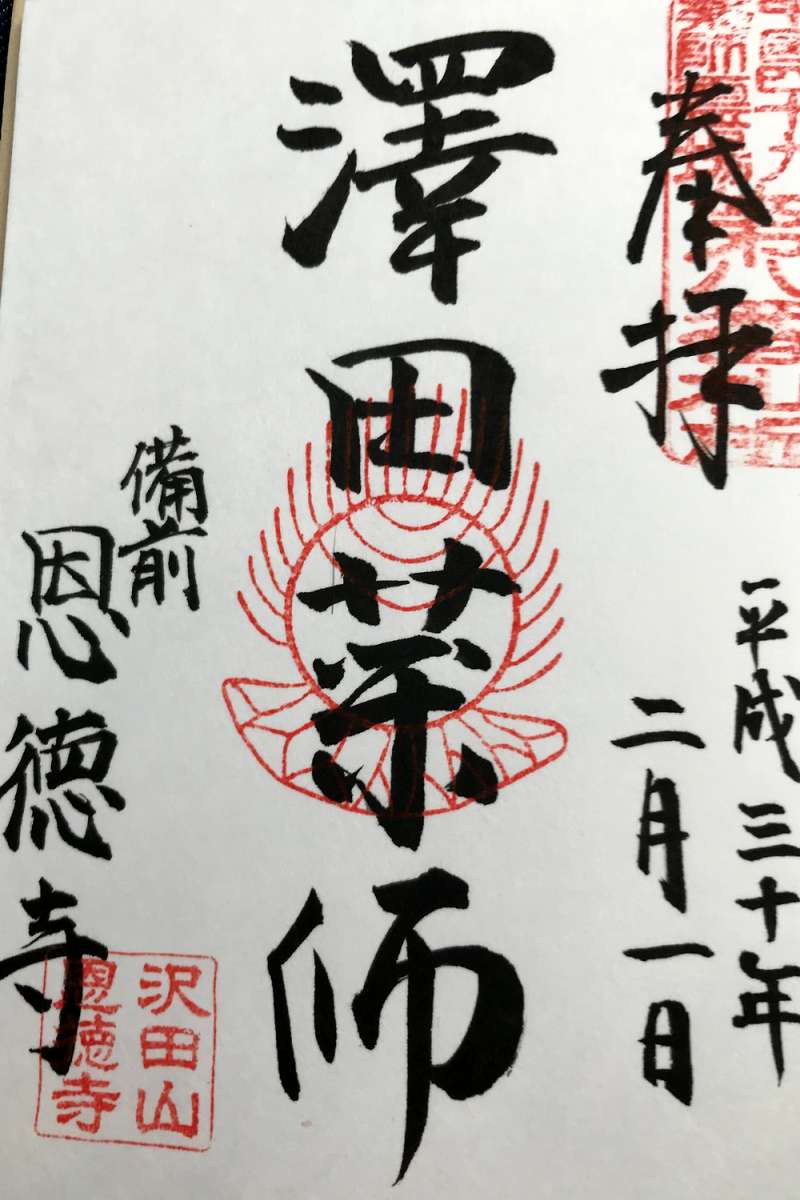 奉拝
平成三十年
二月一日
澤田薬師
備前
恩徳寺
沢田山
恩徳寺